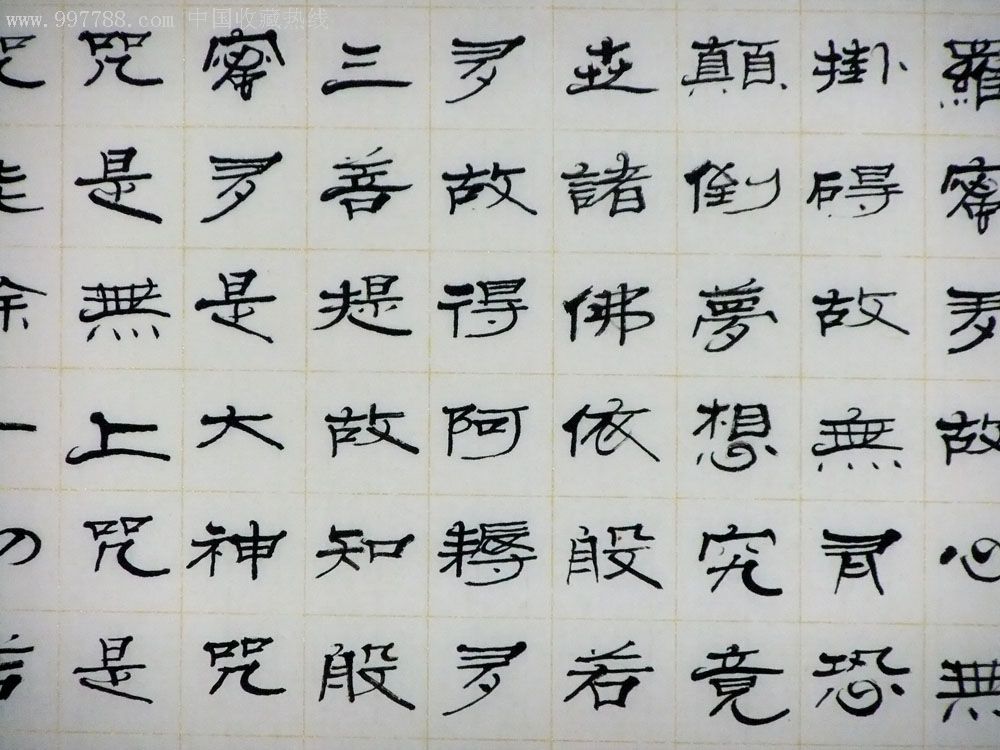 www.997788.com 中国收藏热线
羅蜜多故心無
掛碍故無有恐
顛倒夢想究竟
世諸佛依般若
多故得阿耨多
三菩提故知般
蜜多是大神咒
咒是無上咒是
咒能除一切